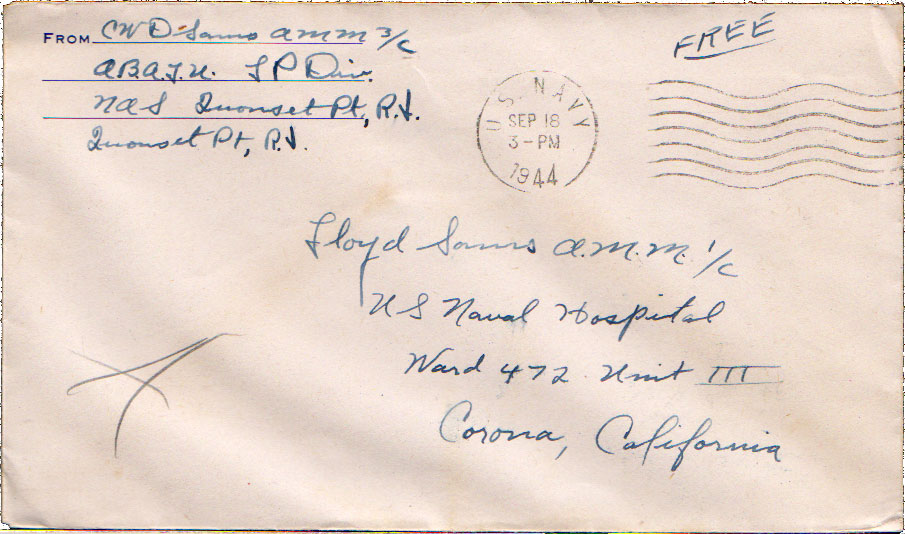 FROM CW D Sams AMM 3/c
A.B.A.T.U. I P Div.
NAS Quonset Pt, R.I.
Quonset Pt, R.I.
FREE
U.S. NAVY
SEP 18
3-PM
1944
Floyd Sams A.M.M. 1/c
US Naval Hospital
Ward 472 Unit III
Corona, California